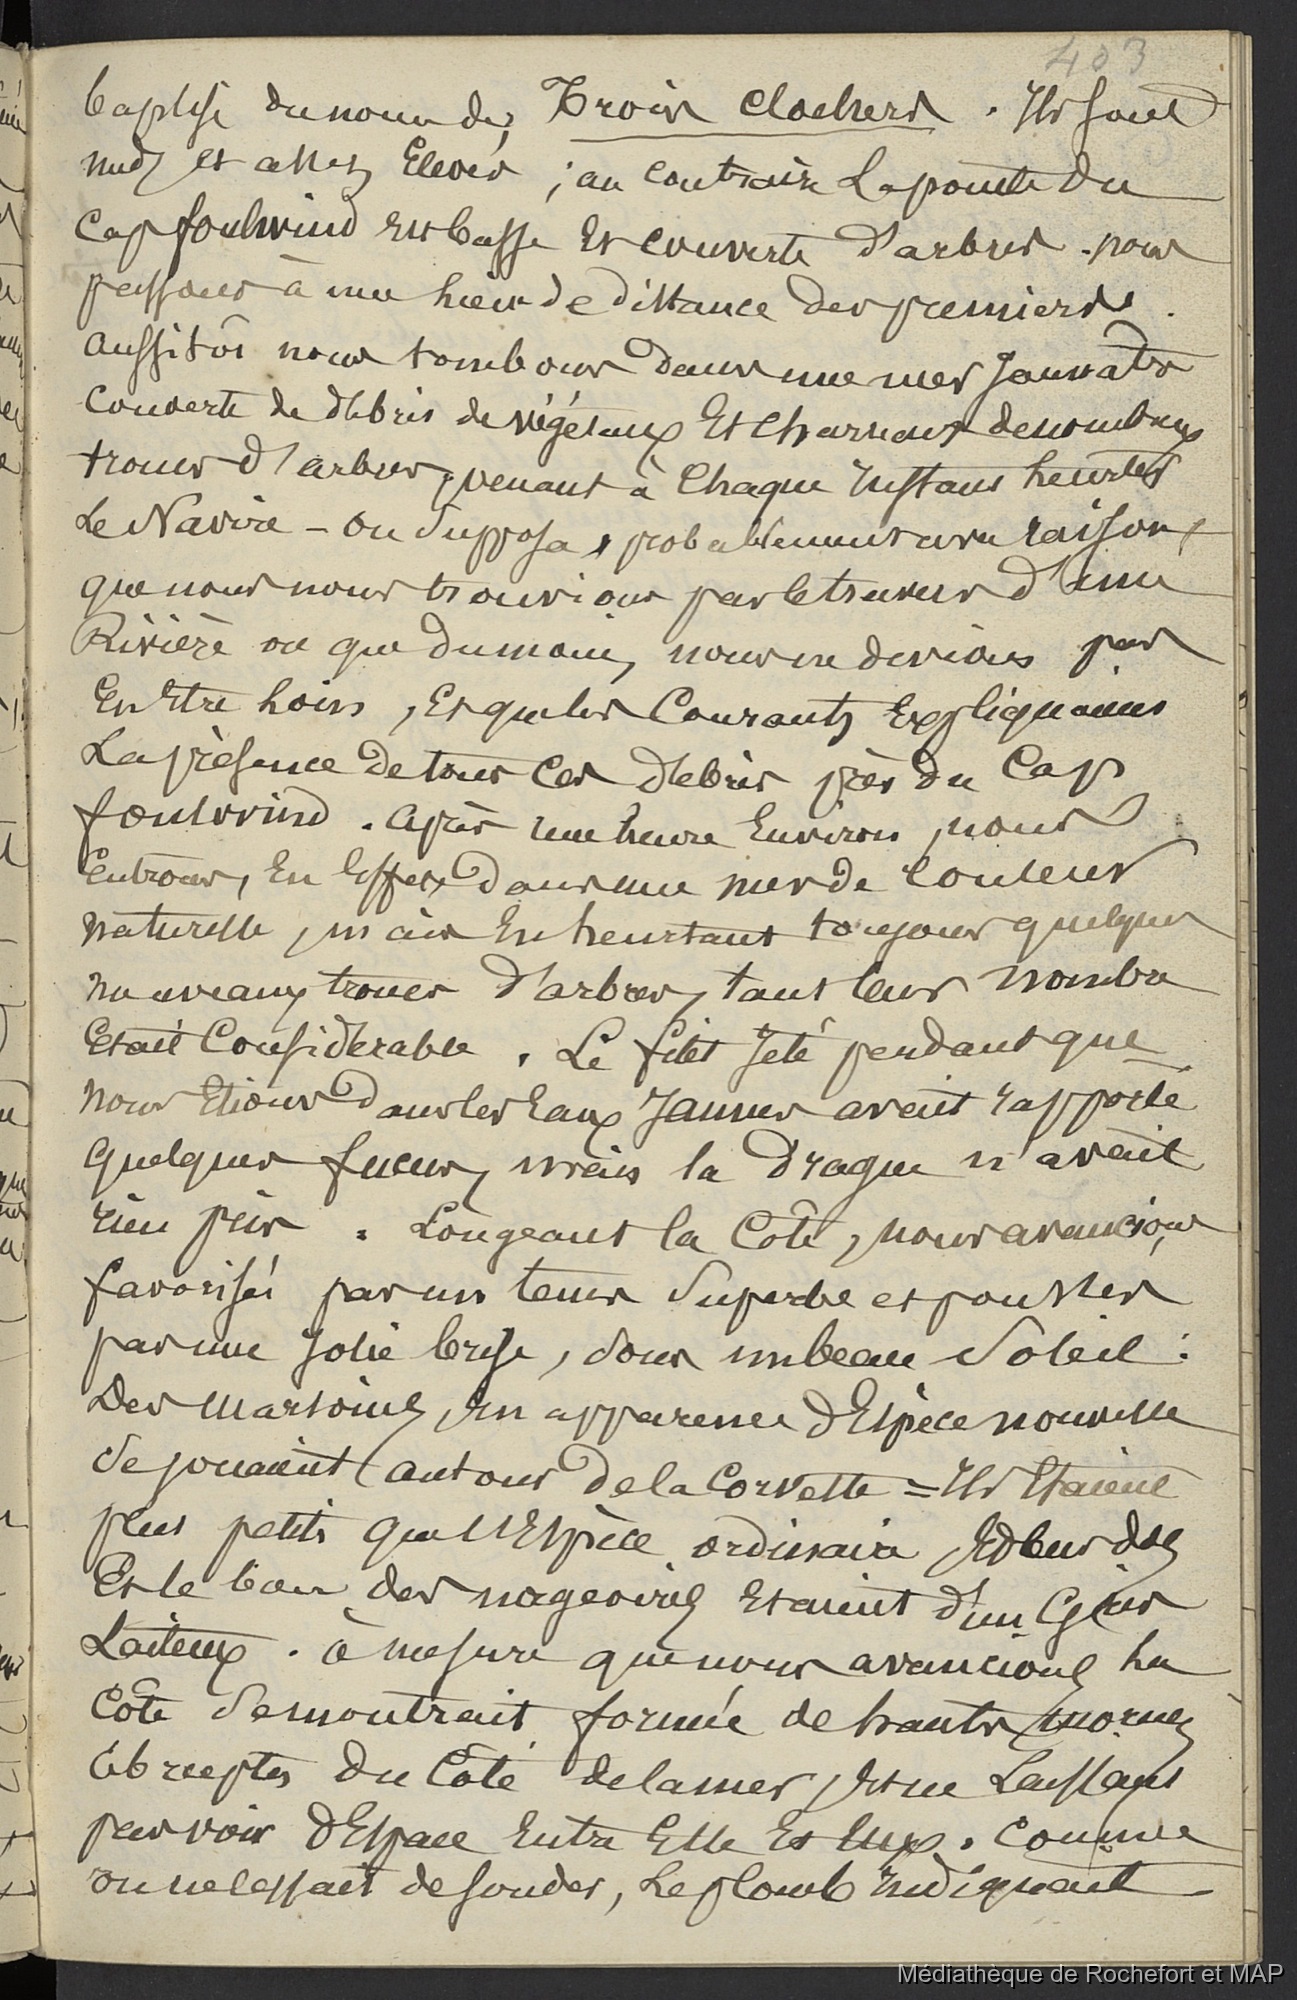 403
baptisé du nom des Trois clochers . Ils sont
nuds et assez Elevés ; au contraire La pointe du
Cap foulwind Est basse Et couverte d'arbres . nous
passons à une lieue de distance des premiers .
aussitôt nous tombons dans une mer Jaunatre
Couverte de débris de végétaux Et charriant de nombreux
troncs d'arbres, venant à Chaque instant heurter
Le Navire - on supposa, probablement avec raison,
que nous nous trouvions par le travers d'une
Rivière ou que du moins, nous ne devions pas
En Etre loin, Et que les Courants Expliquaient
La présence de tous Ces débris près du Cap
foulwind . après une heure Environ, nous
Entrons, En Effet, dans une mer de couleur
naturelle, mais En heurtant toujours quelques
nouveaux troncs d'arbres, tant leur nombre
Etait Considérable . Le filet Jeté pendant que
nous Etions dans les Eaux Jaunes avait rapporté
quelques fucus, mais la drague n'avait
rien pris . Longeant la Côte, nous avancions
favorisés par un tems superbe et poussés
par une jolie brise, sous un beau soleil :
Des Marsouins, En apparence d'Espèce nouvelle
se jouaient autour de la Corvette = Ils Etaient
plus petits que l'Espèce ordinaire, Et le bas du dos
Et le bout des nageoires Etaient d'un Gris
Laiteux . à mesure que nous avancions La
Côte se montrait formée de hauts mornes
abruptes du Côté de la mer, Et ne Laissant
pas voir d'Espace Entre Elle Et Eux . Comme
on ne cessait de sonder, Le plomb indiquant
Médiathèque de Rochefort et MAP